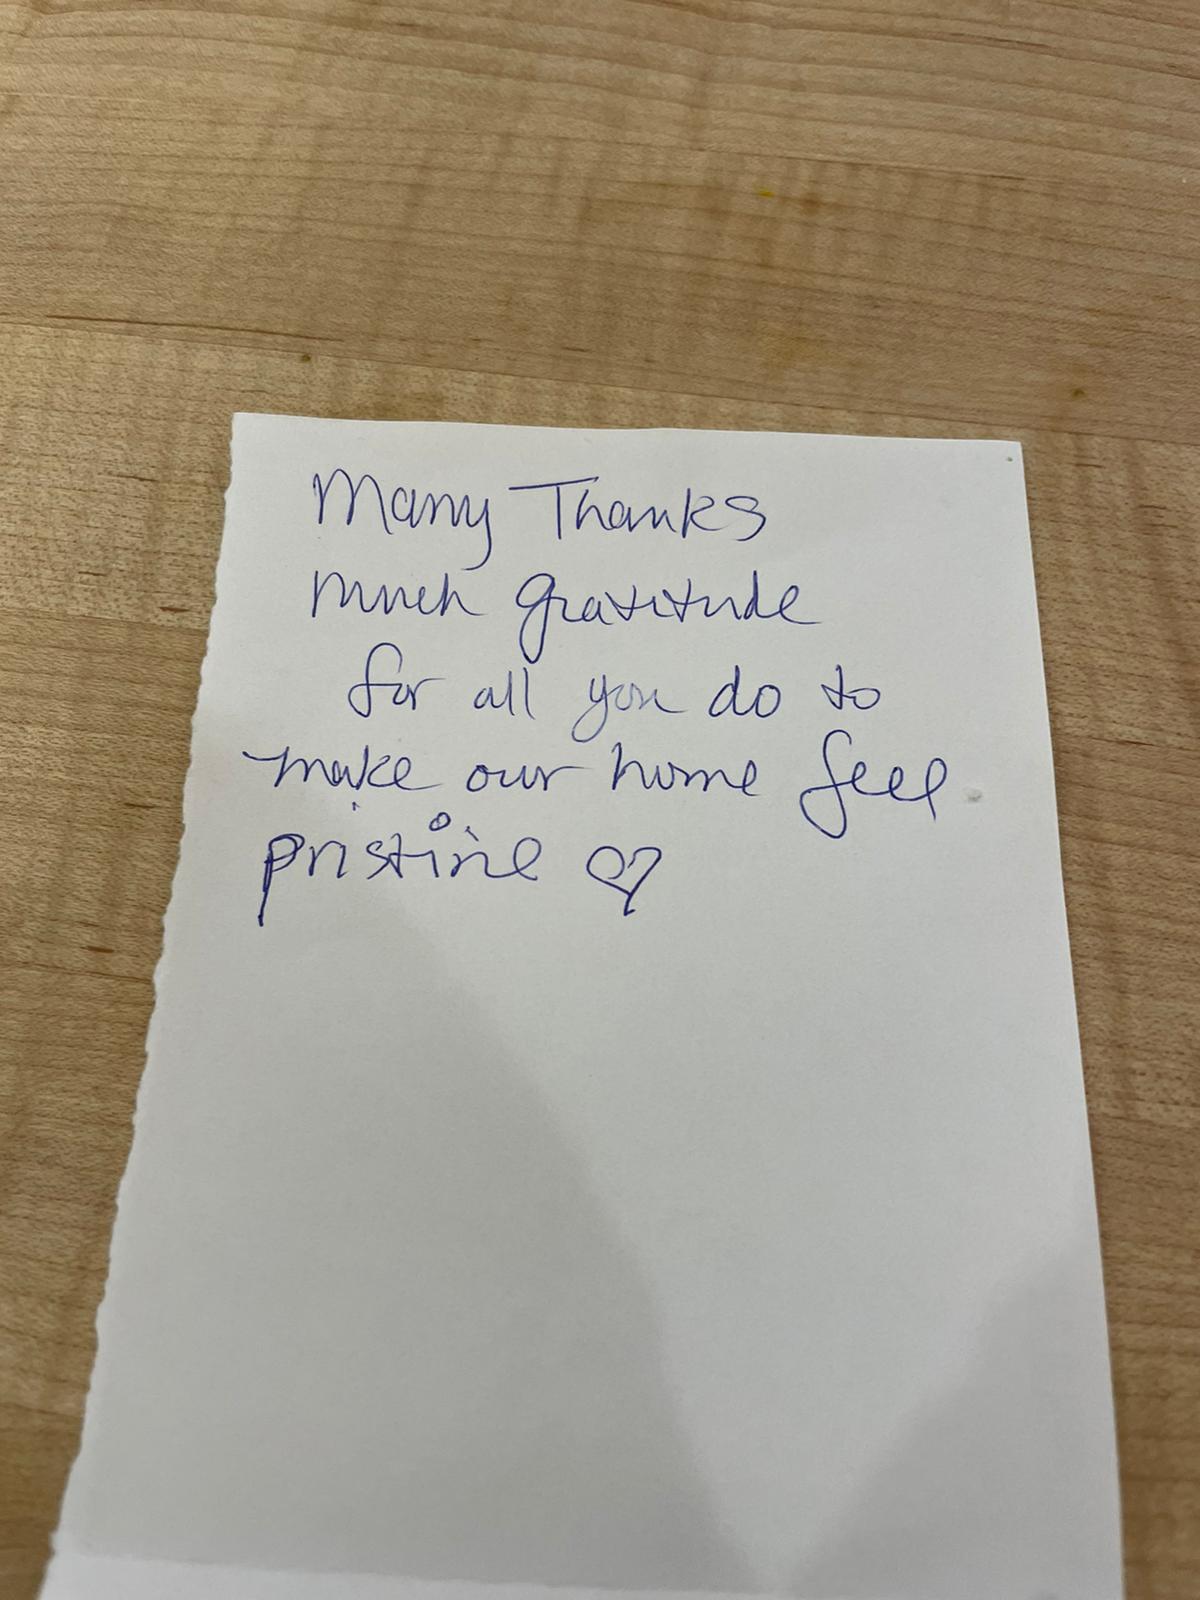 Many Thanks
much gratitude
for all you do to
make our home feel
pristine ♡